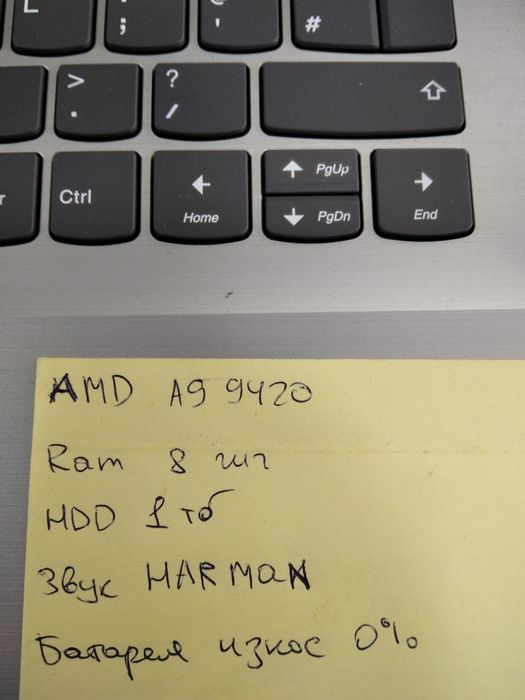 L : ; @ ' ~ #
> . ? /
Ctrl Home PgUp PgDn End
AMD A9 9420
Ram 8 гиг
HDD 1 тб
Звук HARMAN
Батарея износ 0%